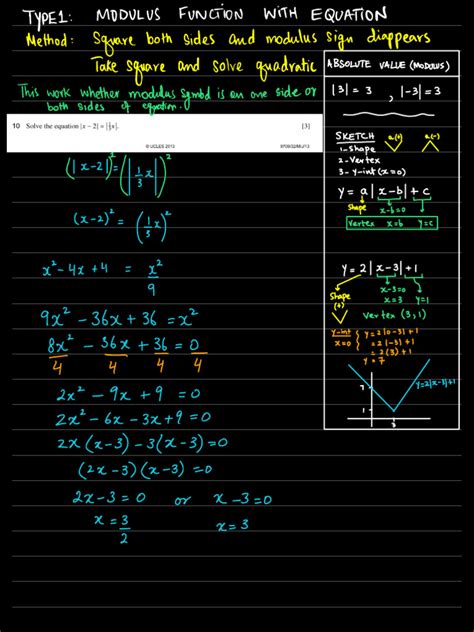 TYPE1: MODULUS FUNCTION WITH EQUATION
Method: Square both sides and modulus sign diappears
Take square and solve quadratic
This work whether modulus symbol is on one side or
both sides of equation.
10 Solve the equation |x − 2| = |⅓x|. [3]
© UCLES 2013
(|x-2|)² = (|1/3 x|)²
(x-2)² = (1/3 x)²
x² - 4x + 4 = x²/9
9x² - 36x + 36 = x²
8x²/4 - 36x/4 + 36/4 = 0/4
2x² - 9x + 9 = 0
2x² - 6x - 3x + 9 = 0
2x(x-3) - 3(x-3) = 0
(2x-3)(x-3) = 0
2x-3 = 0 or x-3 = 0
x = 3/2 x = 3
ABSOLUTE VALUE (MODULUS)
|3| = 3 , |-3| = 3
SKETCH a(+) a(-)
1-Shape
2-Vertex
3- y-int (x=0)
y = a|x-b| + c
Shape x-b=0
Vertex x=b y=c
y = 2|x-3|+1
Shape (+) x-3=0
x=3 y=1
Vertex (3,1)
y-int x=0 y=2|0-3|+1
=2|-3|+1
=2(3)+1
=7
7
y=2|x-3|+1
1
3